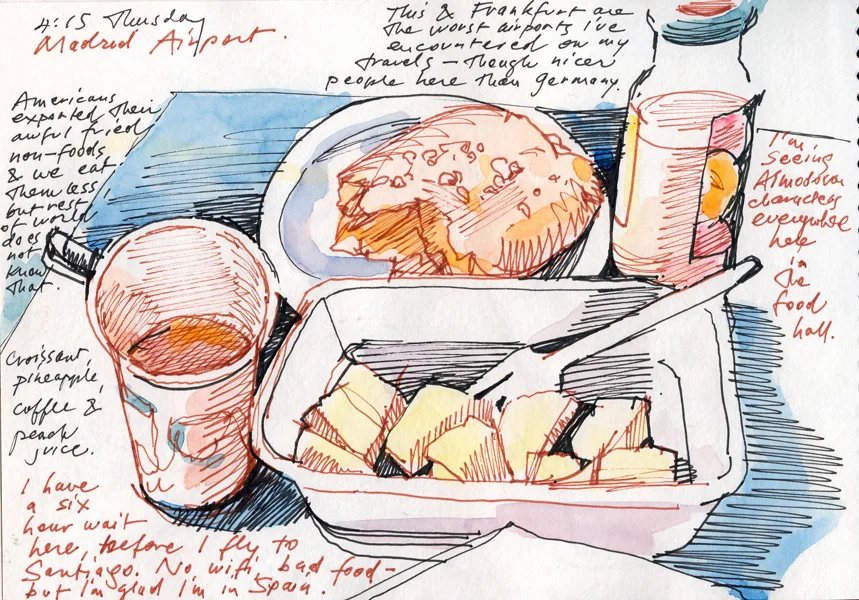 4:15 Thursday
Madrid Airport.
This & Frankfurt are
the worst airports I've
encountered on my
travels – though nicer
people here than Germany.
Americans
exported their
awful fried
non-foods
& we eat
them less
but rest
of world
does
not
know
that.
I'm
Seeing
Almodovar
characters
everywhere
here
in
the
food
hall.
Croissant,
pineapple,
coffee &
peach
juice.
I have
a six
hour wait
here, before I fly to
Santiago. No wifi, bad food –
but I'm glad I'm in Spain.